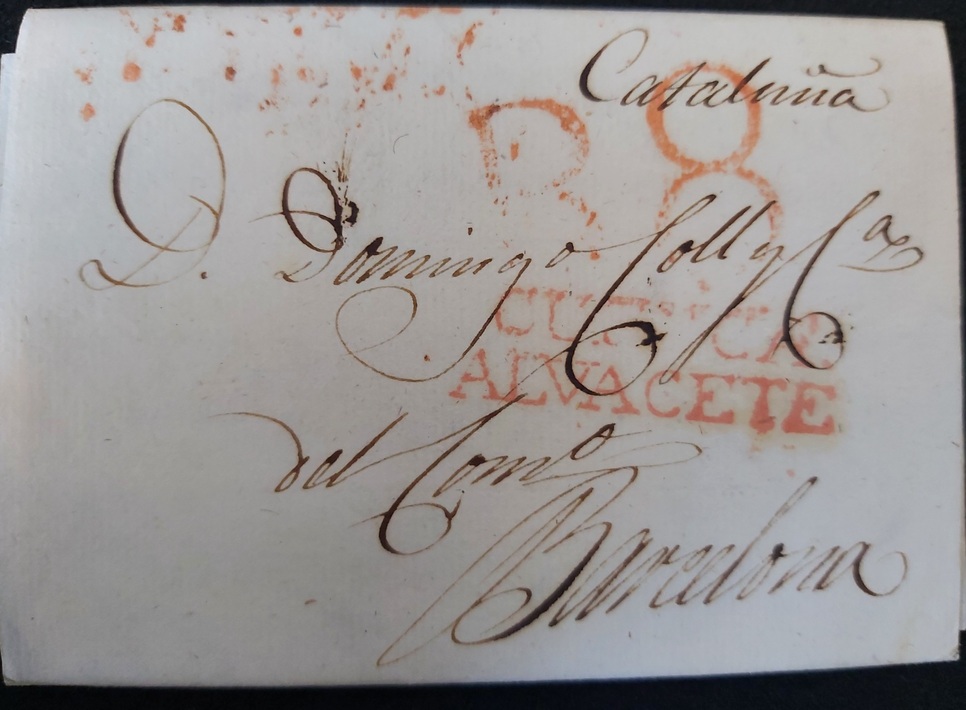 Cataluña
R 8
D. Domingo Coll y Cª
CUENCA
ALVACETE
del Comº
Barcelona